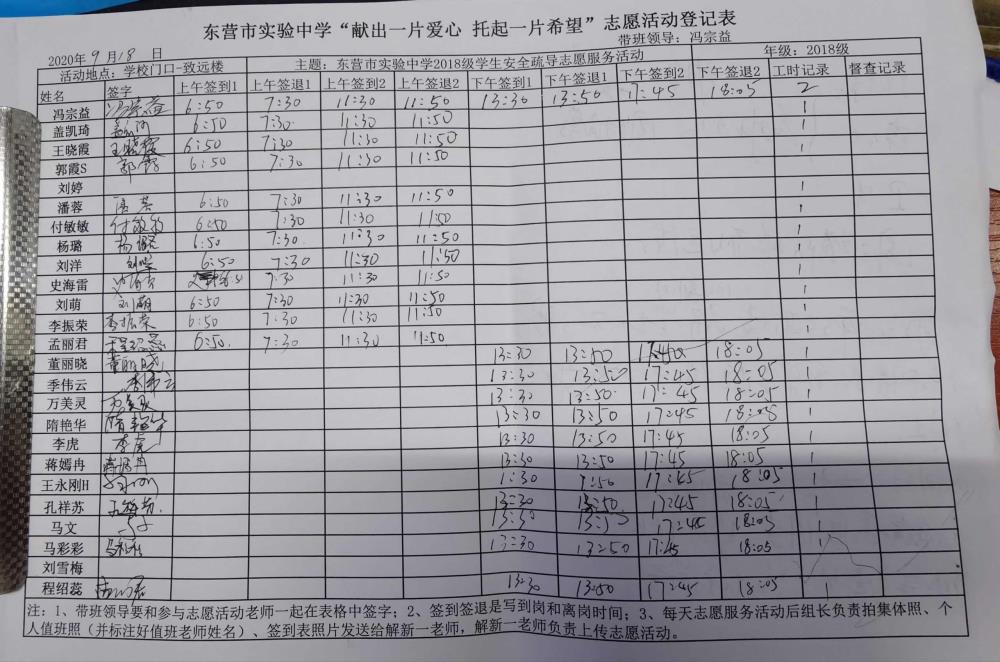 东营市实验中学“献出一片爱心 托起一片希望”志愿活动登记表
2020年9月18日 带班领导：冯宗益
活动地点：学校门口-致远楼 主题：东营市实验中学2018级学生安全疏导志愿服务活动 年级：2018级
姓名 签字 上午签到1 上午签退1 上午签到2 上午签退2 下午签到1 下午签退1 下午签到2 下午签退2 工时记录 督查记录
冯宗益 冯宗益 6:50 7:30 11:30 11:50 13:30 13:50 17:45 18:05 2
盖凯琦 6:50 7:30 11:30 11:50 1
王晓霞 王晓霞 6:50 7:30 11:30 11:50 1
郭霞S 郭霞 6:50 7:30 11:30 11:50 1
刘婷
潘蓉 潘蓉 6:50 7:30 11:30 11:50 1
付敏敏 付敏敏 6:50 7:30 11:30 11:50 1
杨璐 杨璐 6:50 7:30 11:30 11:50 1
刘洋 刘洋 6:50 7:30 11:30 11:50 1
史海雷 7:30 11:30 11:50 1
刘萌 刘萌 6:50 7:30 11:30 11:50 1
李振荣 李振荣 6:50 7:30 11:30 11:50 1
孟丽君 6:50 7:30 11:30 11:50 1
董丽晓 董丽晓 13:30 13:50 17:45 18:05 1
季伟云 季伟云 13:30 13:50 17:45 18:05 1
万美灵 万美灵 13:30 13:50 17:45 18:05 1
隋艳华 隋艳华 13:30 13:50 17:45 18:08 1
李虎 李虎 13:30 13:50 17:45 18:05 1
蒋嫣冉 蒋嫣冉 13:30 13:50 17:45 18:05 1
王永刚H 1:30 1:50 17:45 18:05 1
孔祥苏 孔祥苏 13:30 13:50 17:45 18:05 1
马文 马文 13:30 13:50 17:45 18:05 1
马彩彩 13:30 13:50 17:45 18:05 1
刘雪梅
程绍蕊 13:30 13:50 17:45 18:05 1
注：1、带班领导要和参与志愿活动老师一起在表格中签字；2、签到签退是写到岗和离岗时间；3、每天志愿服务活动后组长负责拍集体照、个
人值班照（并标注好值班老师姓名）、签到表照片发送给解新一老师，解新一老师负责上传志愿活动。